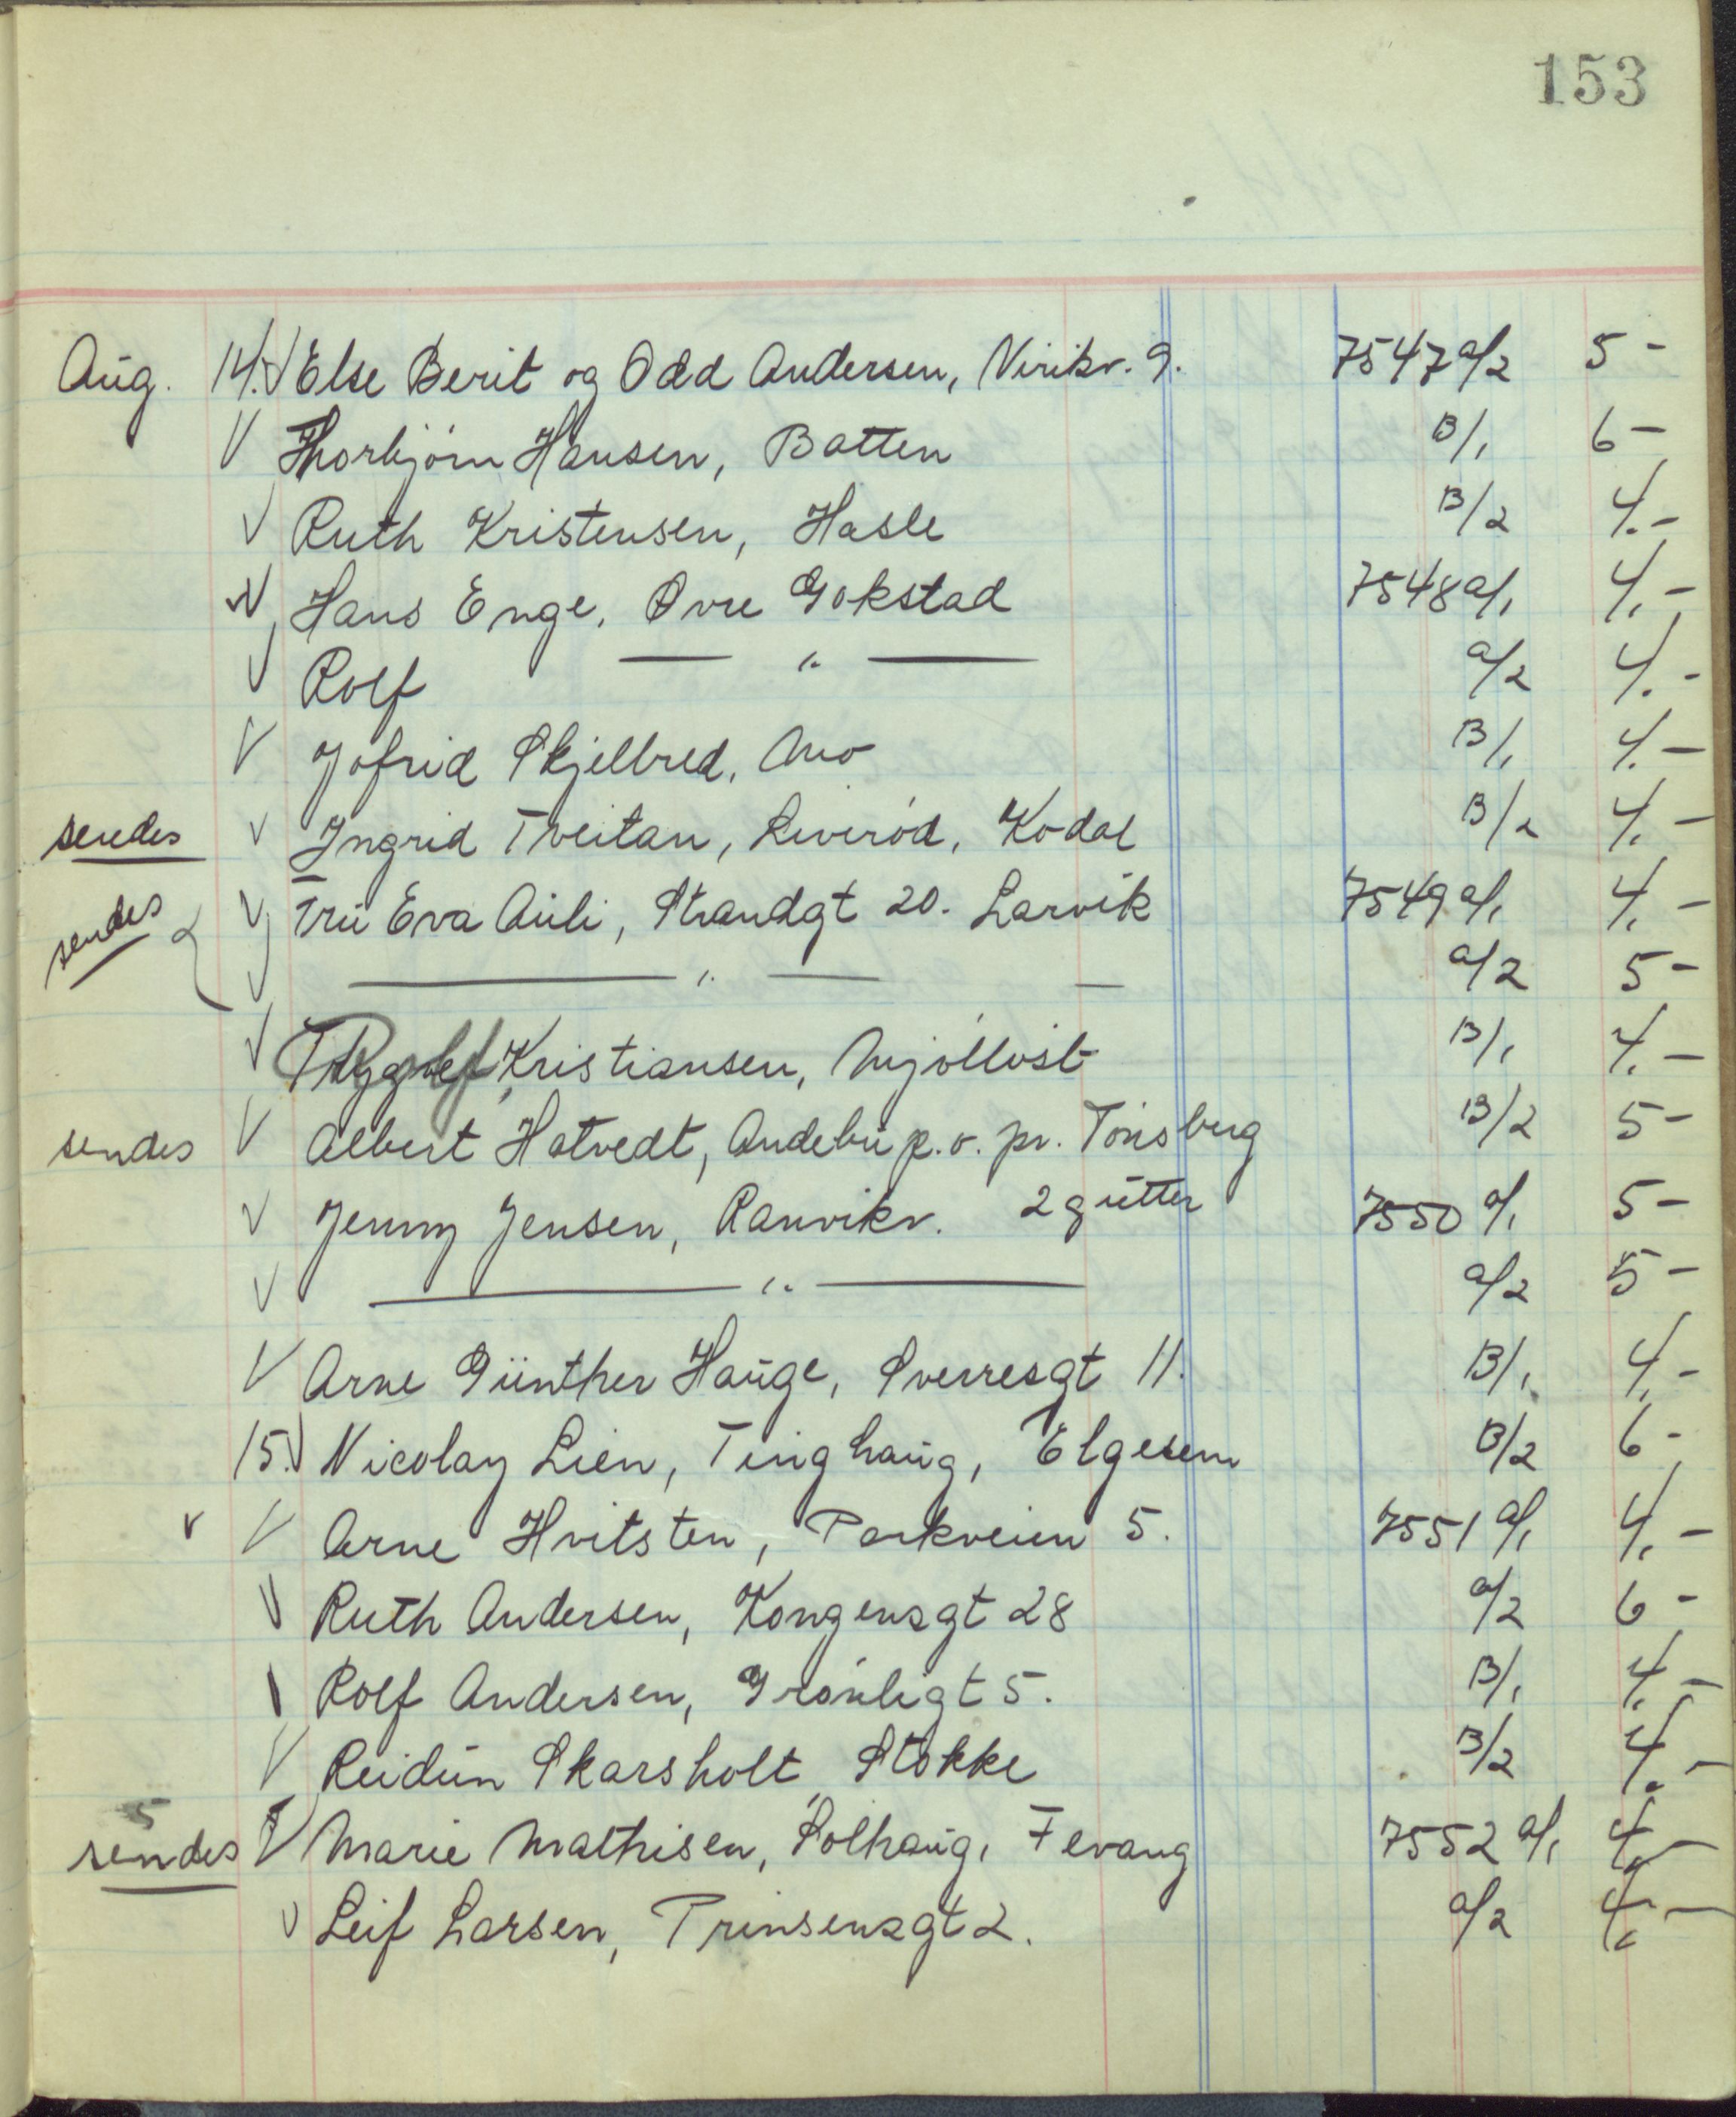 153
Aug. 14. √ Else Berit og Odd Andersen, Virikv. 9. 7547 a/2 5 -
√ Thorbjørn Hansen, Batten B/1 6 -
√ Ruth Kristensen, Hasle B/2 4.-
√ Hans Enge, Øvre Gokstad 7548 a/1 4.-
√ Rolf — " — a/2 4.-
√ Jofrid Skjelbred, Mo B/1 4.-
sendes √ Ingrid Tveitan, Liverød, Kodal B/2 4.-
sendes { √ Fru Eva Auli, Strandgt 20. Larvik 7549 a/1 4.-
√ — " — — a/2 5 -
√ Kristiansen, Mjøllost B/1 4.-
sendes √ Albert Hotvedt, Andebu p.o. pr. Tønsberg B/2 5 -
√ Jenny Jensen, Ranvikv. 2 gutter 7550 a/1 5 -
√ — " — a/2 5 -
√ Arne Günther Hauge, Sverresgt 11. B/1 4.-
15. √ Nicolay Lien, Tinghaug, Elgesem B/2 6 -
√ √ Arne Hvitsten, Parkveien 5. 7551 a/1 4.-
√ Ruth Andersen, Kongensgt 28 a/2 6 -
\ Rolf Andersen, Grønligt 5. B/1 4.-
√ Reidun Skarsholt, Stokke B/2 4.-
sendes √ Marie Mathisen, Solhaug, Fevang 7552 a/1 4.-
√ Leif Larsen, Prinsensgt 2. a/2 4.-